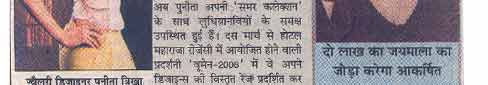 अब पुनीता अपनी 'समर कलेक्शन'
के साथ लुधियानवियों के समक्ष
उपस्थित हुई हैं। दस मार्च से होटल
महाराजा रीजेंसी में आयोजित होने वाली
प्रदर्शनी 'वूमेन-2006' में वे अपने
डिजाइन्स की विस्तृत रेंज प्रदर्शित कर
ज्वैलरी डिजाइनर पुनीता त्रिखा
दो लाख का जयमाला का
जोड़ा करेगा आकर्षित